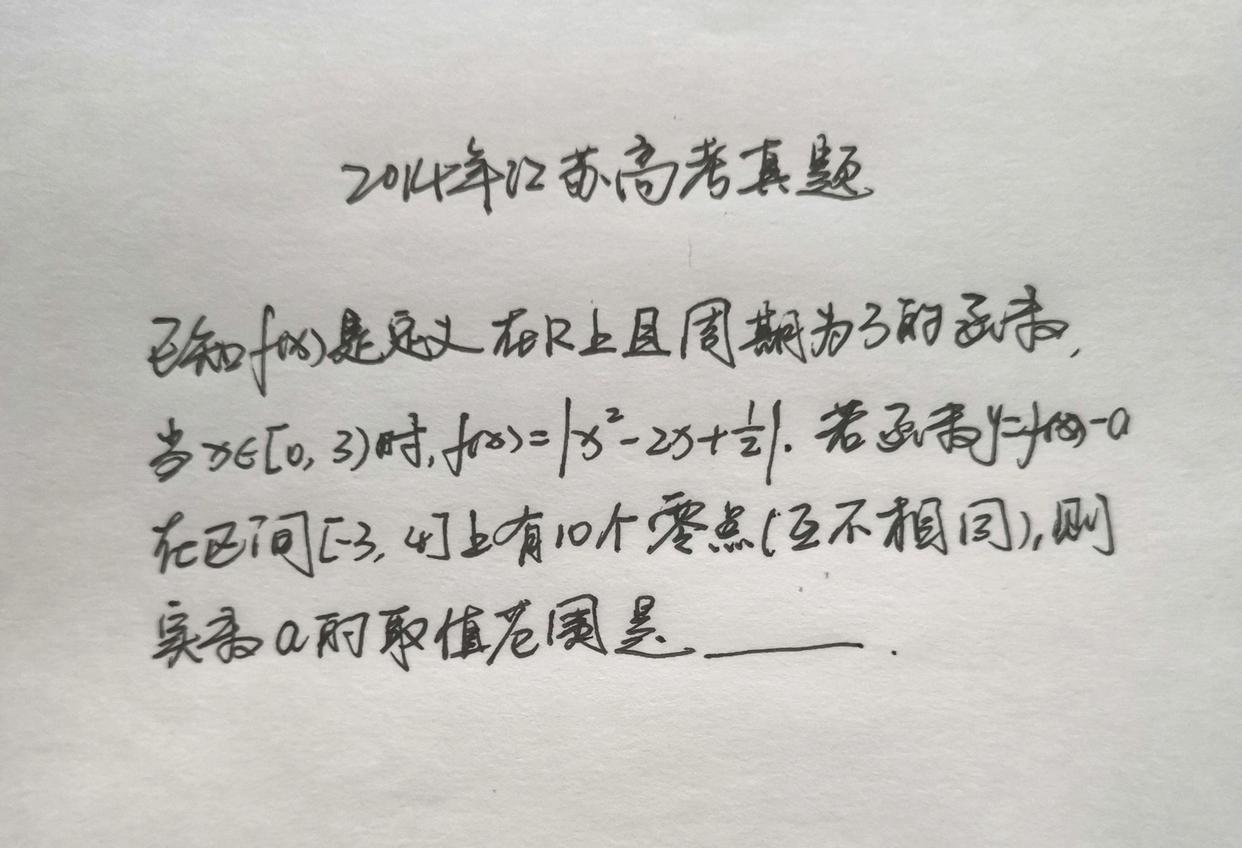 2014年江苏高考真题
已知f(x)是定义在R上且周期为3的函数,
当x∈[0,3)时,f(x)=|x²-2x+½|.若函数y=f(x)-a
在区间[-3,4]上有10个零点(互不相同),则
实数a的取值范围是______.